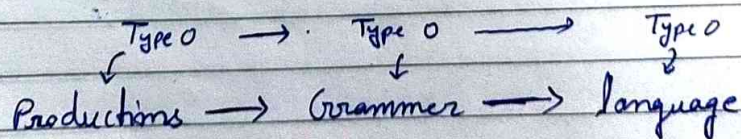 Type 0 → . Type 0 → Type 0
Productions → Grammer → language